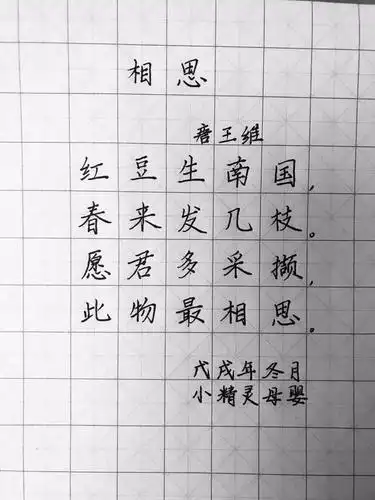 相思
唐王维
红豆生南国,
春来发几枝。
愿君多采撷,
此物最相思。
戊戌年冬月
小精灵母婴